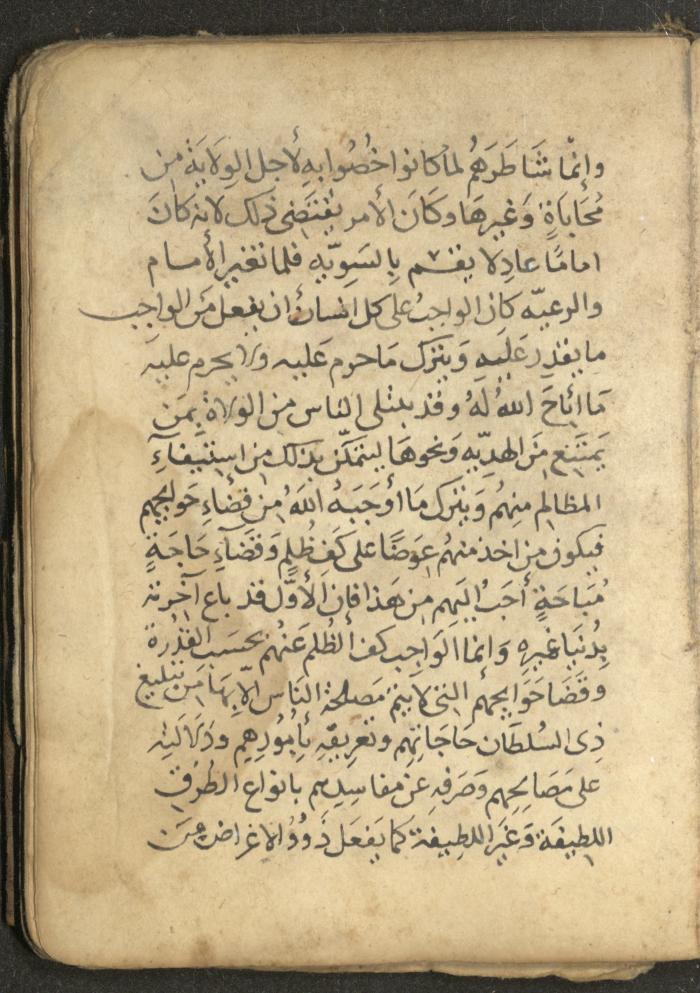 وانّما شَاطَرَهُم لماكانوا خُصُوا به لأجل الوِلَايَةِ من
مُحَابَاةٍ وَغيرهَا وكَانَ الأمر يقتَضي ذلك لانه كانَ
امامًا عادِلا يقسم بِالسَويّه فلما تغير الأمام
والرعيّه كان الواجبُ على كل انسان ان يفعل مَن الواجِب
ما يقدِر عَليهِ وَيترك مَاحرم عَليه ولا يحرم عليه
مَا اباحَ اللهُ لَهُ وقد يبتلى الناس من الولاة بِمَن
يَمتَنع مَن الهديّه وَنحوهَا ليتمكّن بذلك من استيفآءِ
المظالم منِهُم وَيترك مَا أوجَبَهُ اللهُ من قضَاءِ حَوايجِهم
فيكون من اخذ منهُم عِوَضًا على كَف ظُلمٍ وَقضَآءِ حَاجَةٍ
مُبَاحَةٍ أحَبُ اليَهِم من هَذا فإن الأوَّل قد باع آخرته
بِدُنيَا غَيرِهِ وَانما الوَاجِب كف الظُلم عَنهُم بحَسَب القُدرة
وقضَا حَوَايجهم التى لاَ يتم مَصلحة النَاس الّا بِهَا مَن تبليغ
ذِى السُلطَان حَاجَاتِهِم وتعرِيفهِ بِأُمُورِهِم ودَلالته
على مَصَالِحِهِم وَصَرفهِ عن مفاسِدهِم بانواع الطُرق
اللطيفَة وَغَير اللطِيفة كما يَفعَل ذَوُوا الاغراض مِن